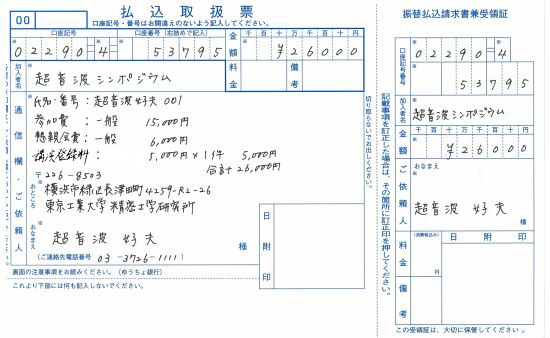 00
払込取扱票
口座記号・番号はお間違えのないよう記入してください。
口座記号
口座番号（右詰めで記入）
02290-4-53795
金額
千百十万千百十円
¥26000
加入者名
超音波シンポジウム
料金
備考
通信欄・ご依頼人
氏名・番号：超音波好夫 001
参加費：一般 15,000円
懇親会費：一般 6,000円
講演登録料：5,000円×1件 5,000円
合計26,000円
〒226-8503
おところ
横浜市緑区長津田町4259-R2-26
東京工業大学 精密工学研究所
おなまえ
超音波 好夫 様
（ご連絡先電話番号 03-3726-1111）
日附印
裏面の注意事項をお読みください。（ゆうちょ銀行）
これより下部には何も記入しないでください。
切り取らないでお出しください。
記載事項を訂正した場合は、その箇所に訂正印を押してください。
振替払込請求書兼受領証
口座記号番号
02290-4
53795
加入者名
超音波シンポジウム
金額
千百十万千百十円
¥26000
ご依頼人
おなまえ
超音波 好夫
様
料金
（消費税込み）
円
日附印
備考
この受領証は、大切に保管してください。